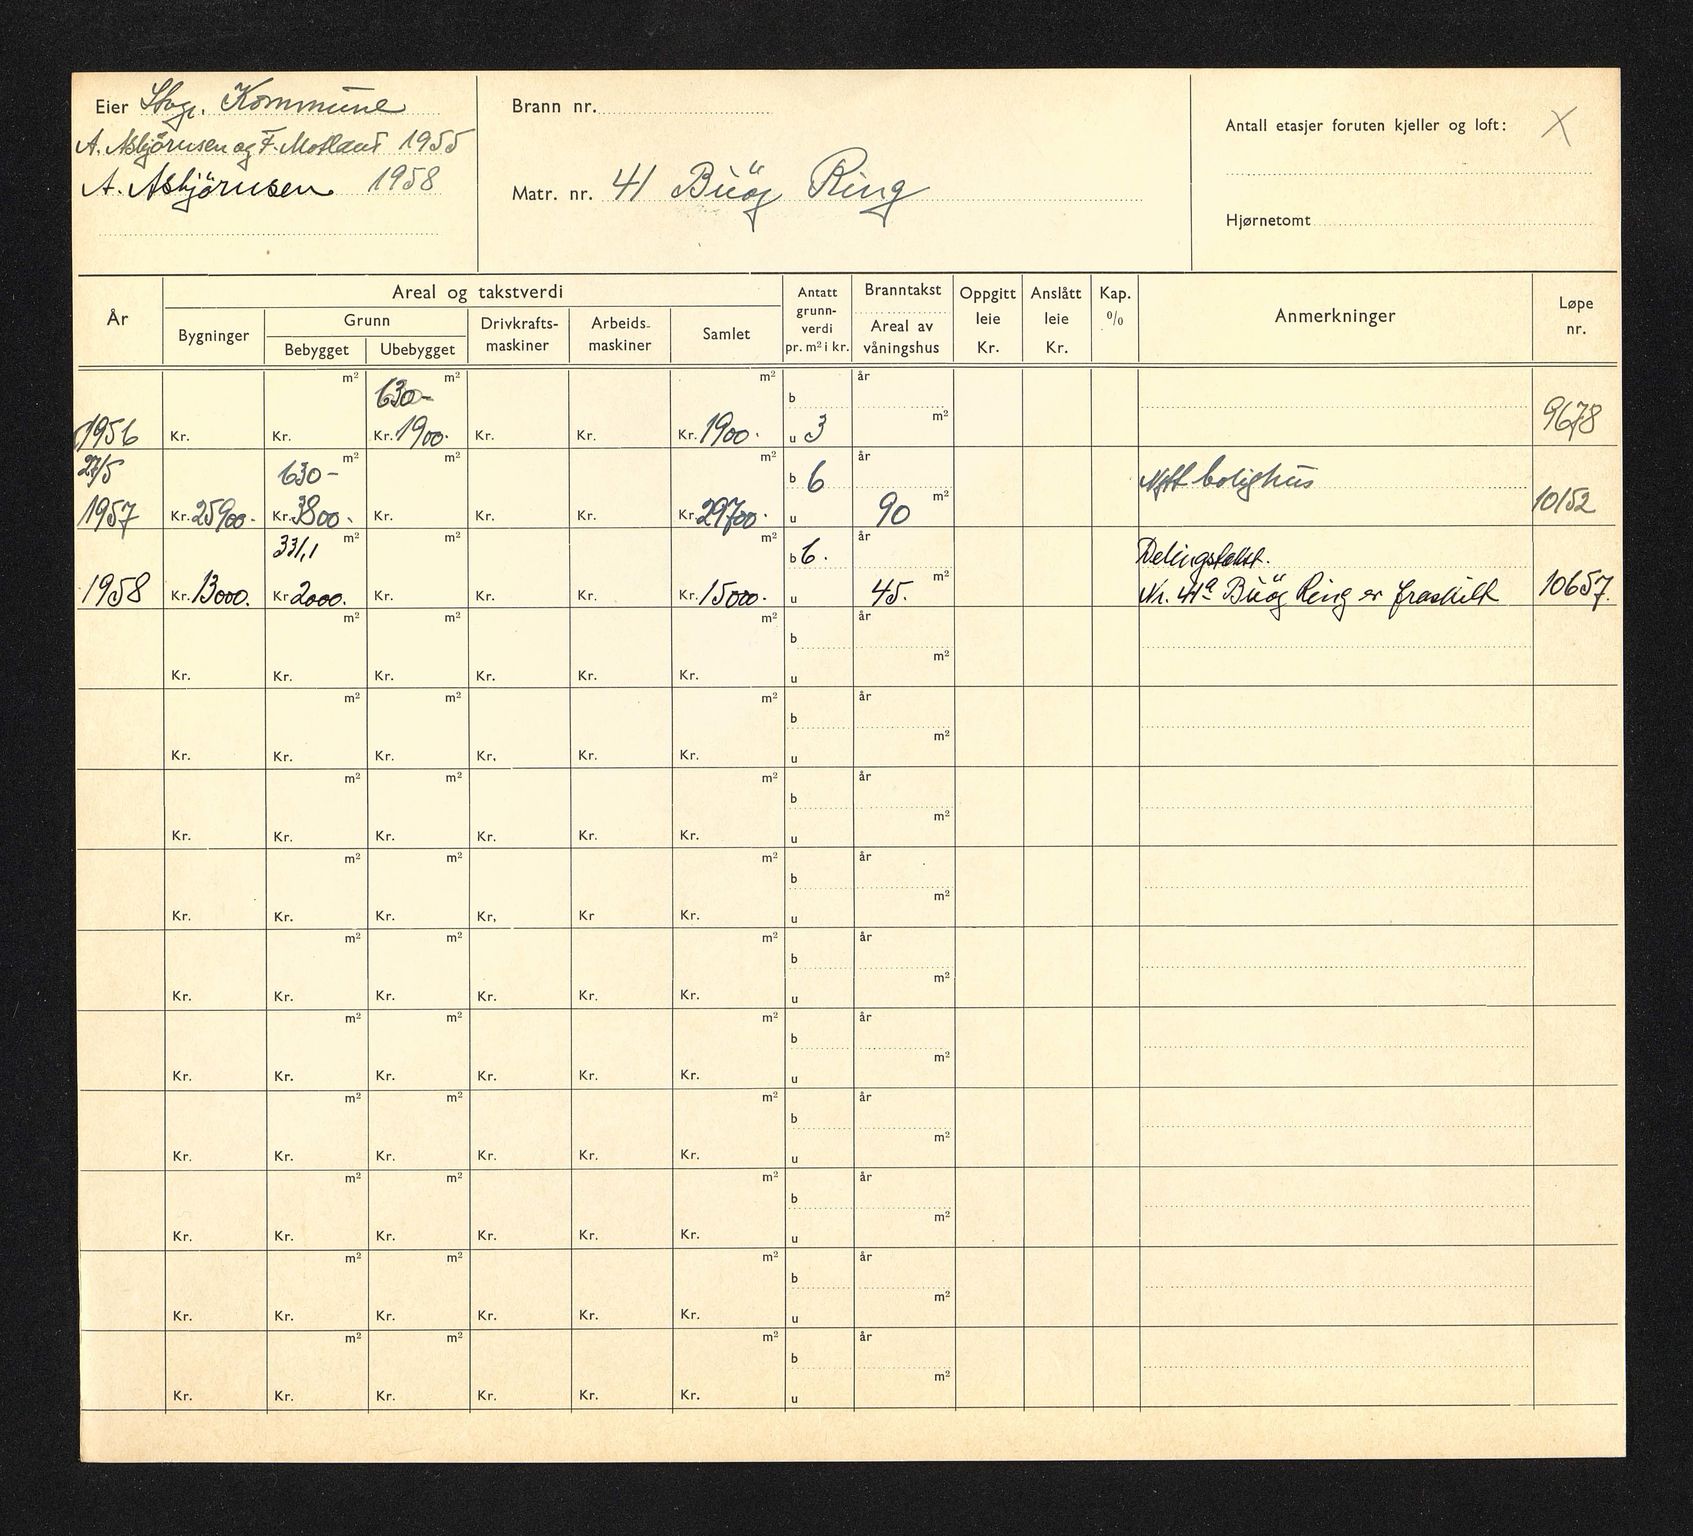 Eier Stvgr. Kommune
A. Asbjörnsen og F. Motland 1955
A. Asbjörnsen 1958
Brann nr.
Matr. nr. 41 Buöy Ring
Antall etasjer foruten kjeller og loft: X
Hjørnetomt
År
Areal og takstverdi
Bygninger
Grunn
Bebygget Ubebygget
Drivkrafts-
maskiner
Arbeids-
maskiner
Samlet
Antatt
grunn-
verdi
pr. m² i kr.
Branntakst
Areal av
våningshus
Oppgitt
leie
Kr.
Anslått
leie
Kr.
Kap.
%
Anmerkninger
Løpe
nr.
m² 630- m² m² b år
1956 Kr. Kr. Kr. 1900.- Kr. Kr. Kr. 1900.- u 3 m² 9678
27/5 630- m² m² m² b 6 år Nytt bolighus
1957 Kr. 25900.- Kr. 3800.- Kr. Kr. Kr. Kr. 29700.- u 90 m² 10152
331,1 m² m² m² b 6. år Delingstakst.
1958 Kr. 13000. Kr. 2000. Kr. Kr. Kr. Kr. 15000.- u 45. m² Nr. 41a Buöy Ring er fraskilt 10657.
m² m² m² b år
Kr. Kr. Kr. Kr. Kr. Kr. u m²
m² m² m² b år
Kr. Kr. Kr. Kr. Kr. Kr. u m²
m² m² m² b år
Kr. Kr. Kr. Kr. Kr. Kr. u m²
m² m² m² b år
Kr. Kr. Kr. Kr. Kr Kr. u m²
m² m² m² b år
Kr. Kr. Kr. Kr. Kr. Kr. u m²
m² m² m² b år
Kr. Kr. Kr. Kr. Kr. Kr. u m²
m² m² m² b år
Kr. Kr. Kr. Kr. Kr. Kr. u m²
m² m² m² b år
Kr. Kr. Kr. Kr. Kr. Kr. u m²
m² m² m² b år
Kr. Kr. Kr. Kr. Kr. Kr. u m²
m² m² m² b år
Kr. Kr. Kr. Kr. Kr. Kr. u m²